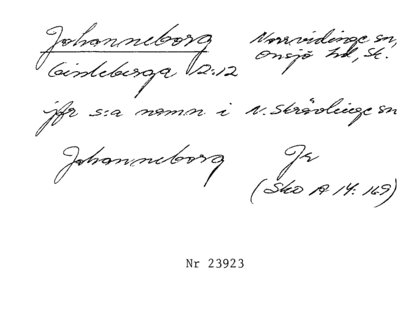 Johanneborg Norrvidinge sn,
Lindeberga 12:12 Onsjö hd, Sk.
jfr s:a namn i N. Skrävlinge sn
Johanneborg Jr
(Sko A 14: 169)
Nr 23923